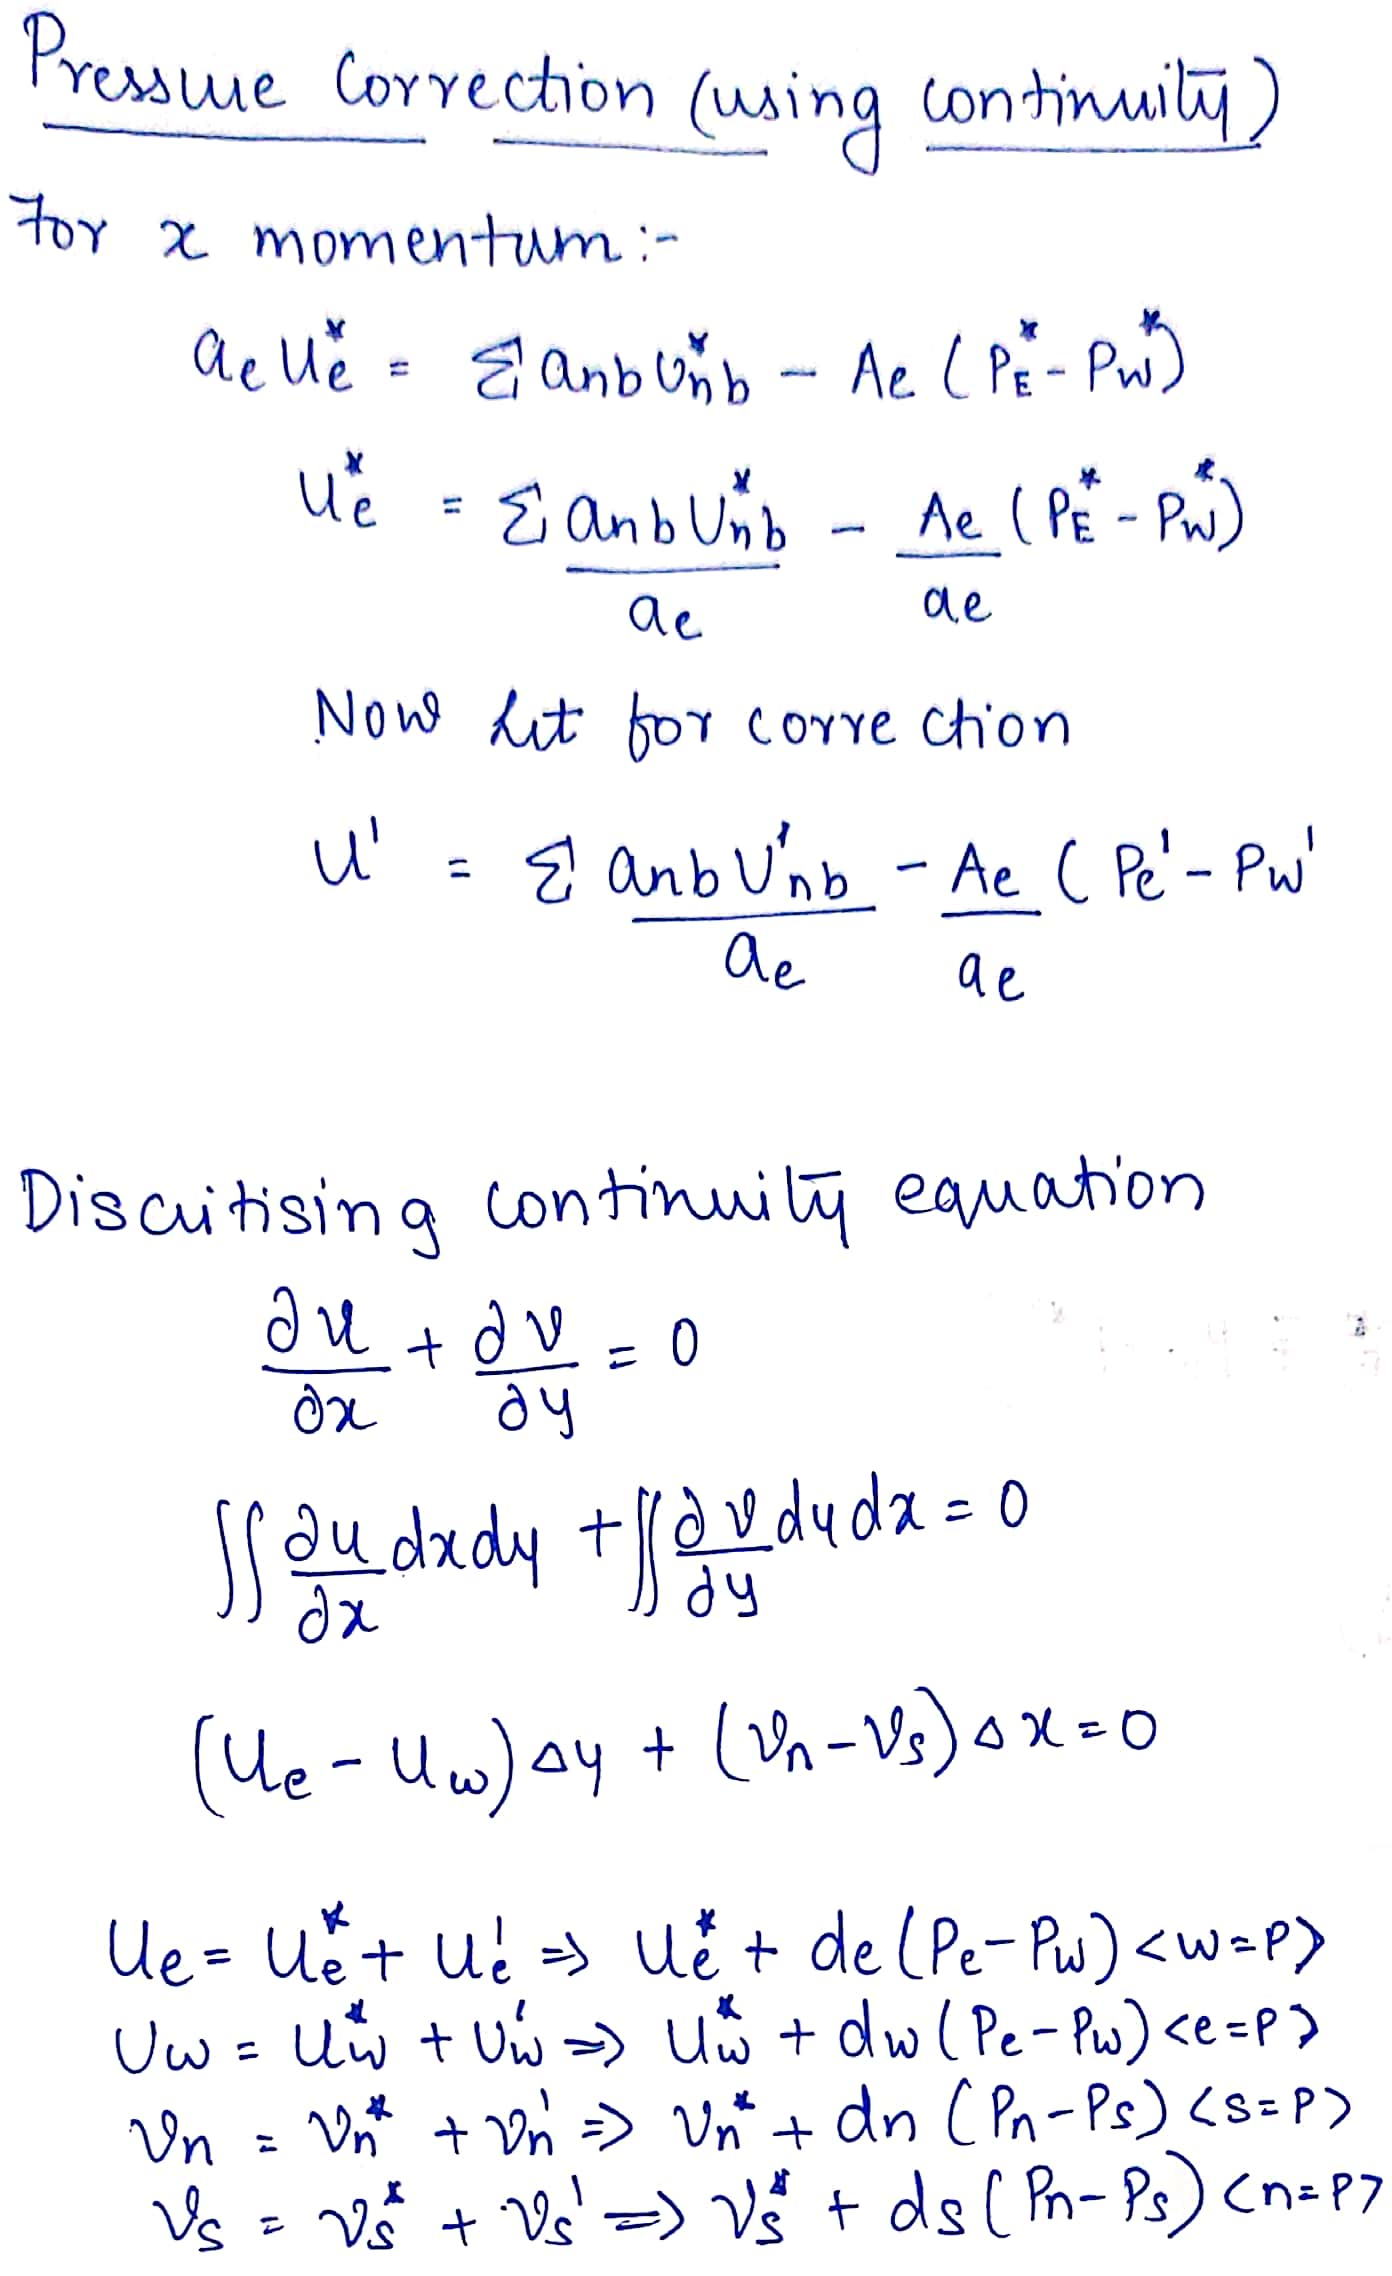 Pressure Correction (using continuity)
For x momentum :-
ae ue* = Σ anb unb* - Ae (PE* - Pw*)
ue* = Σ anb unb* / ae - Ae / ae (PE* - Pw*)
Now let for correction
u' = Σ anb u'nb / ae - Ae / ae (Pe' - Pw'
Discritising continuity equation
∂u/∂x + ∂v/∂y = 0
∬ ∂u/∂x dxdy + ∬ ∂v/∂y dydx = 0
(ue - uw) Δy + (vn - vs) Δx = 0
ue = ue* + ue' => ue* + de (Pe - Pw) <w=P>
uw = uw* + uw' => uw* + dw (Pe - Pw) <e=P>
vn = vn* + vn' => vn* + dn (Pn - Ps) <s=P>
vs = vs* + vs' => vs* + ds (Pn - Ps) <n=P>